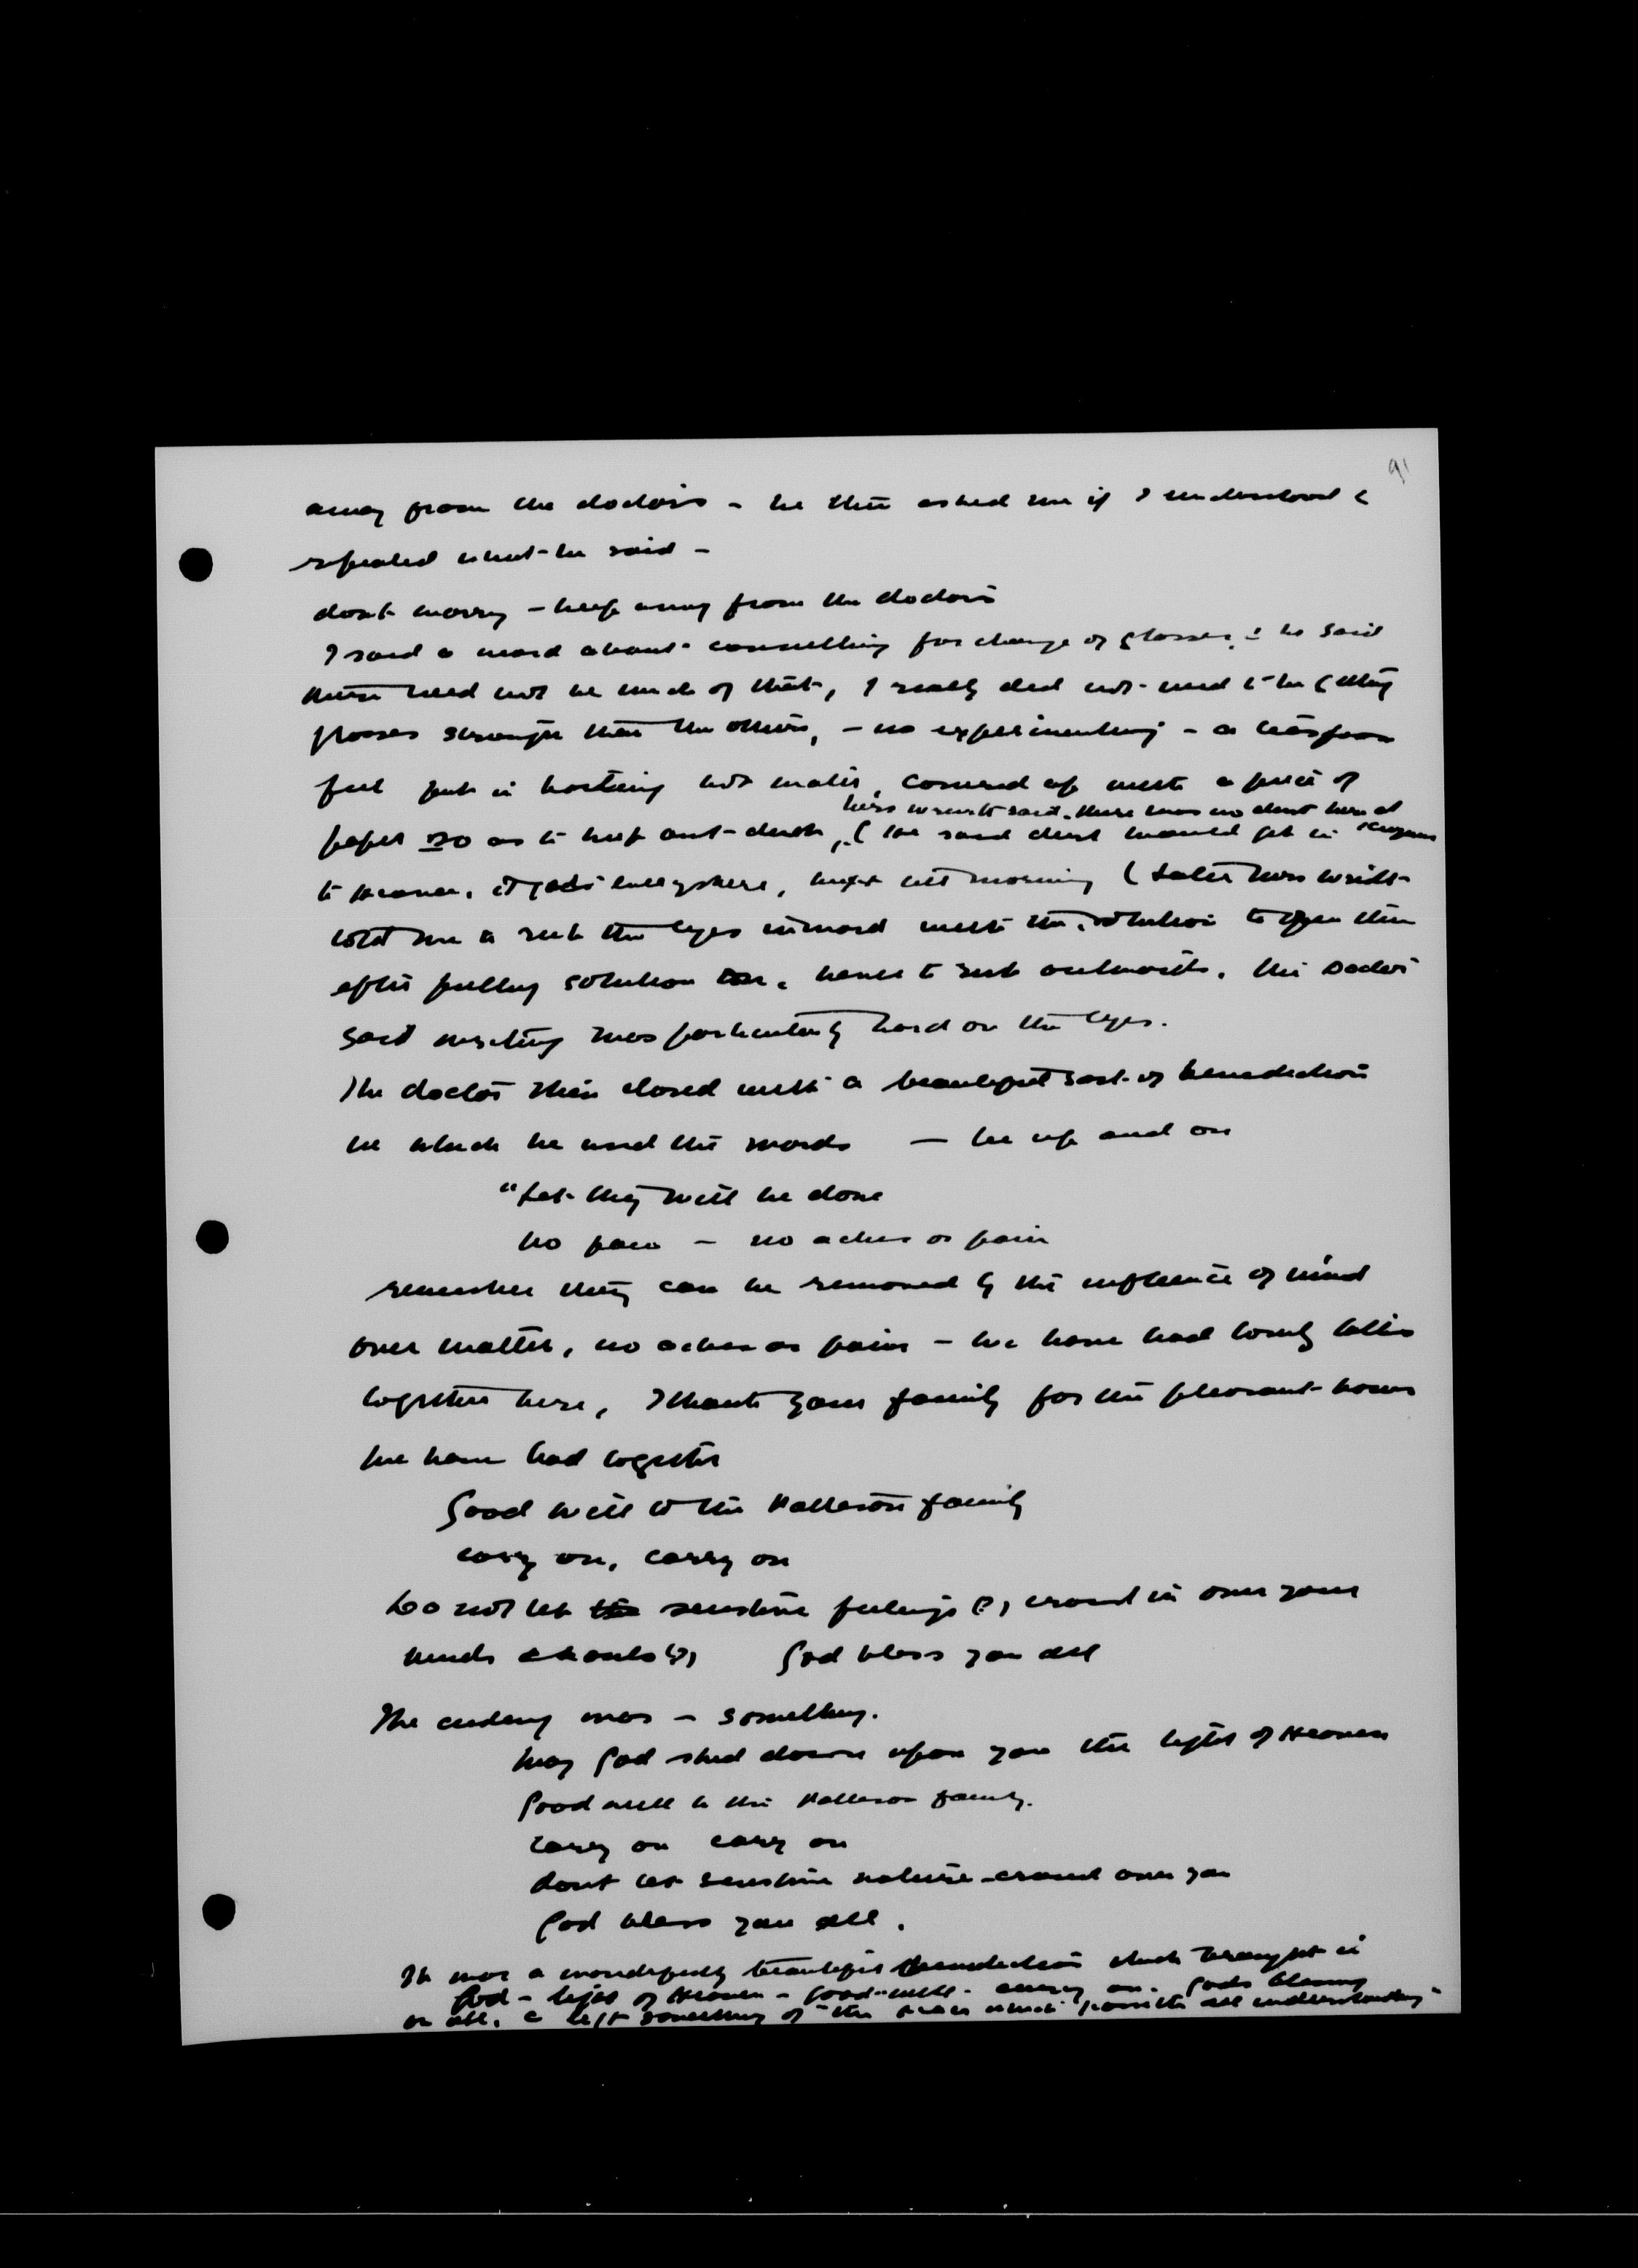 91
away from the doctors - he then asked me if I understood &
repeated what he said -
dont worry - keep away from the doctors
I said a word about consulting for change of glasses, & he said
there need not be much of that, I really did not need to be getting
glasses stronger than the others, - no experimenting - a teaspoon
full put in boiling hot water, covered up with a piece of
Miss said there was no dust here at
paper so as to keep out dust, (he said dust would get in
to Heaven, it gets everywhere, next morning (later Miss
told me to rub the eyes inward with the solution to open them
after putting solution in, hence to rub outwards. The Doctor
said writing was particularly hard on the eyes.
The doctor then closed with a beautiful sort of benediction
in which he used the words — be up and on
"Let thy will be done
no pain - no aches or pain
remember they can be removed by the influence of mind
over matter, no aches or pains - we have had lovely talks
together here, I thank your family for the pleasant hours
we have had together
Good will to the Patterson family
carry on, carry on
Do not let the sensitive feelings (?) crowd in over your
(?) God bless you all
The ending was - something.
May God shed down upon you the light of Heaven
Good will to the Patterson family.
carry on carry on
dont let sensitive nature crowd over you
God bless you all.
It was a wonderfully beautiful benediction which brought in
God - light of Heaven - good-will - carry on. Gods blessing
on all. & left something of "the peace which passeth all understanding"